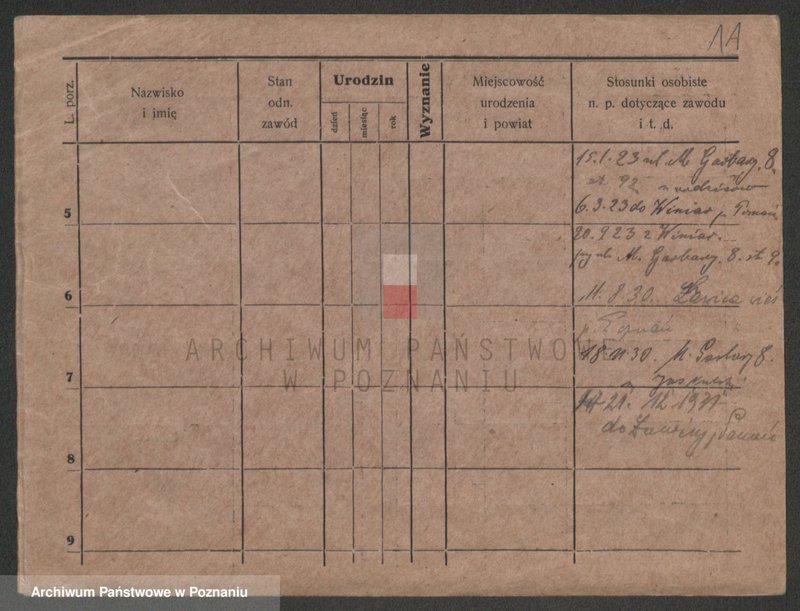 1A
L. porz.
Nazwisko
i imię
Stan
odn.
zawód
Urodzin
dzień
miesiąc
rok
Wyznanie
Miejscowość
urodzenia
i powiat
Stosunki osobiste
n. p. dotyczące zawodu
i t. d.
15.1.23 ul M Garbary 8
5
6.3.23 do Winiar p. Poznań
20.9 23 z Winiar.
M. Garbary. 8.
6
11.8.30. Ławica wieś
p. Poznań
ARCHIWUM PAŃSTWOWE
W POZNANIU
18.11.30. M. Garbary 8.
7
21. 12 1931
do Ławicy p Poznań
8
9
Archiwum Państwowe w Poznaniu